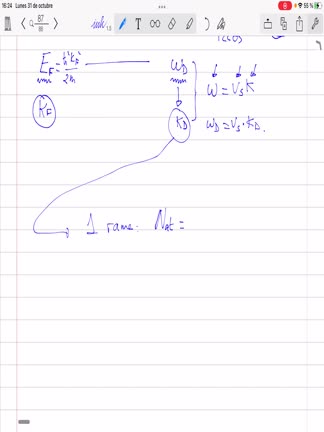 16:24 Lunes 31 de octubre
55 %
87
88
1.5
E_F = ħ²k_F²/2m ω_D
ω = v_s k
K_F K_D ω_D = v_s · k_D.
1 rama: N_at =